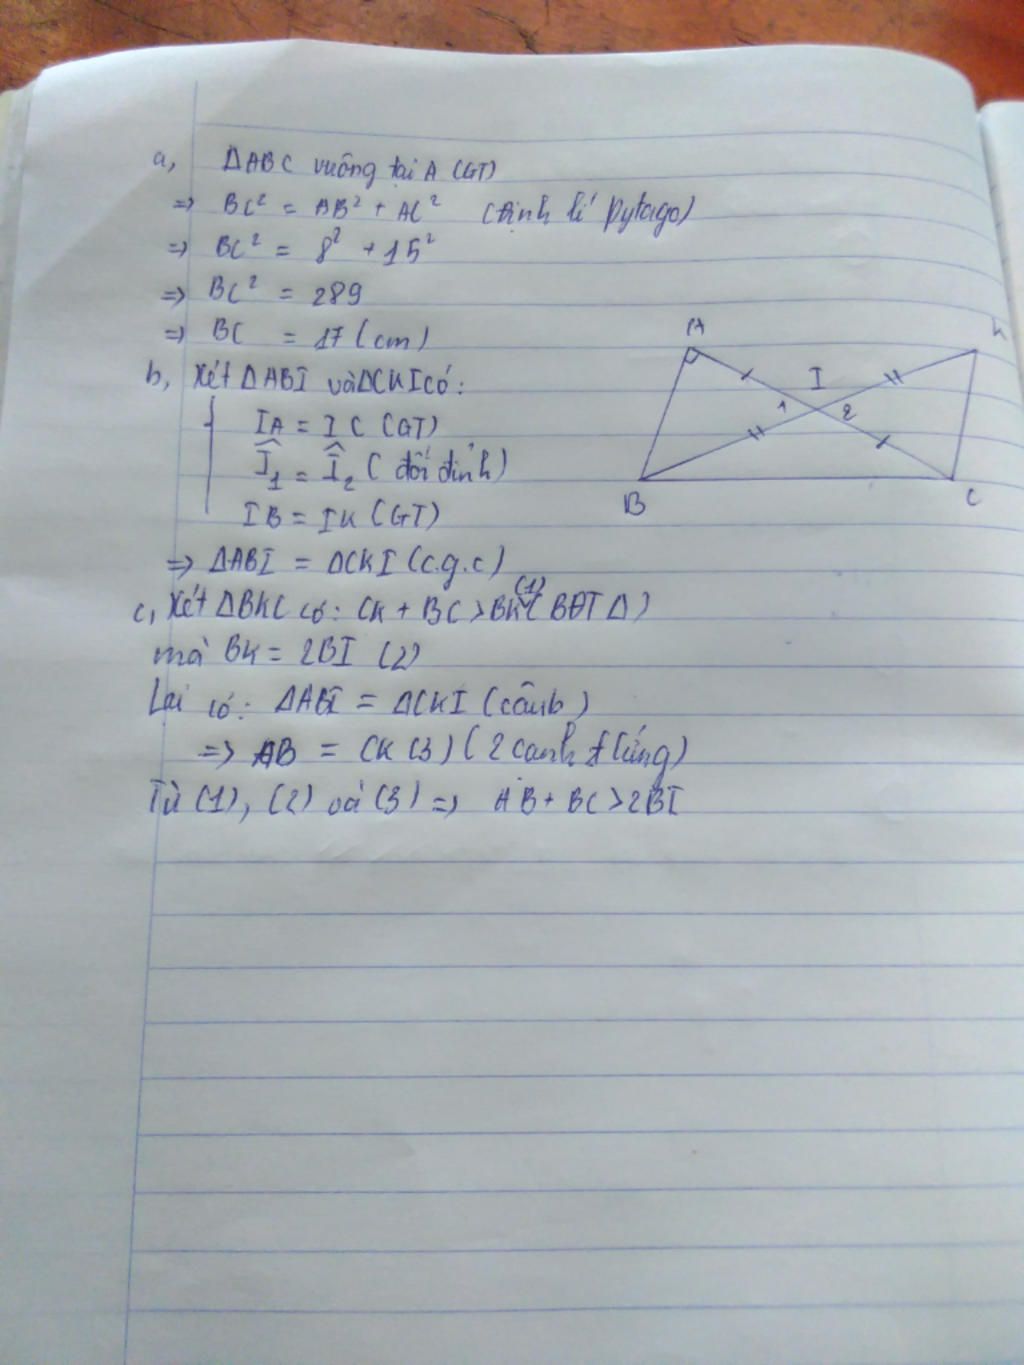 a, ΔABC vuông tại A (GT)
=> BC² = AB² + AC² (Định lí Pytago)
=> BC² = 8² + 15²
=> BC² = 289
=> BC = 17 (cm)
b, Xét ΔABI và ΔCKI có:
IA = IC (GT)
Î₁ = Î₂ (đối đỉnh)
IB = IK (GT)
=> ΔABI = ΔCKI (c.g.c)
c, Xét ΔBKC có: CK + BC > BK (1) (BĐT Δ)
mà BK = 2BI (2)
Lại có: ΔABI = ΔCKI (câu b)
=> AB = CK (3) (2 cạnh tứng)
Từ (1), (2) và (3) => AB + BC > 2BI
A
K
I
1
2
B
C